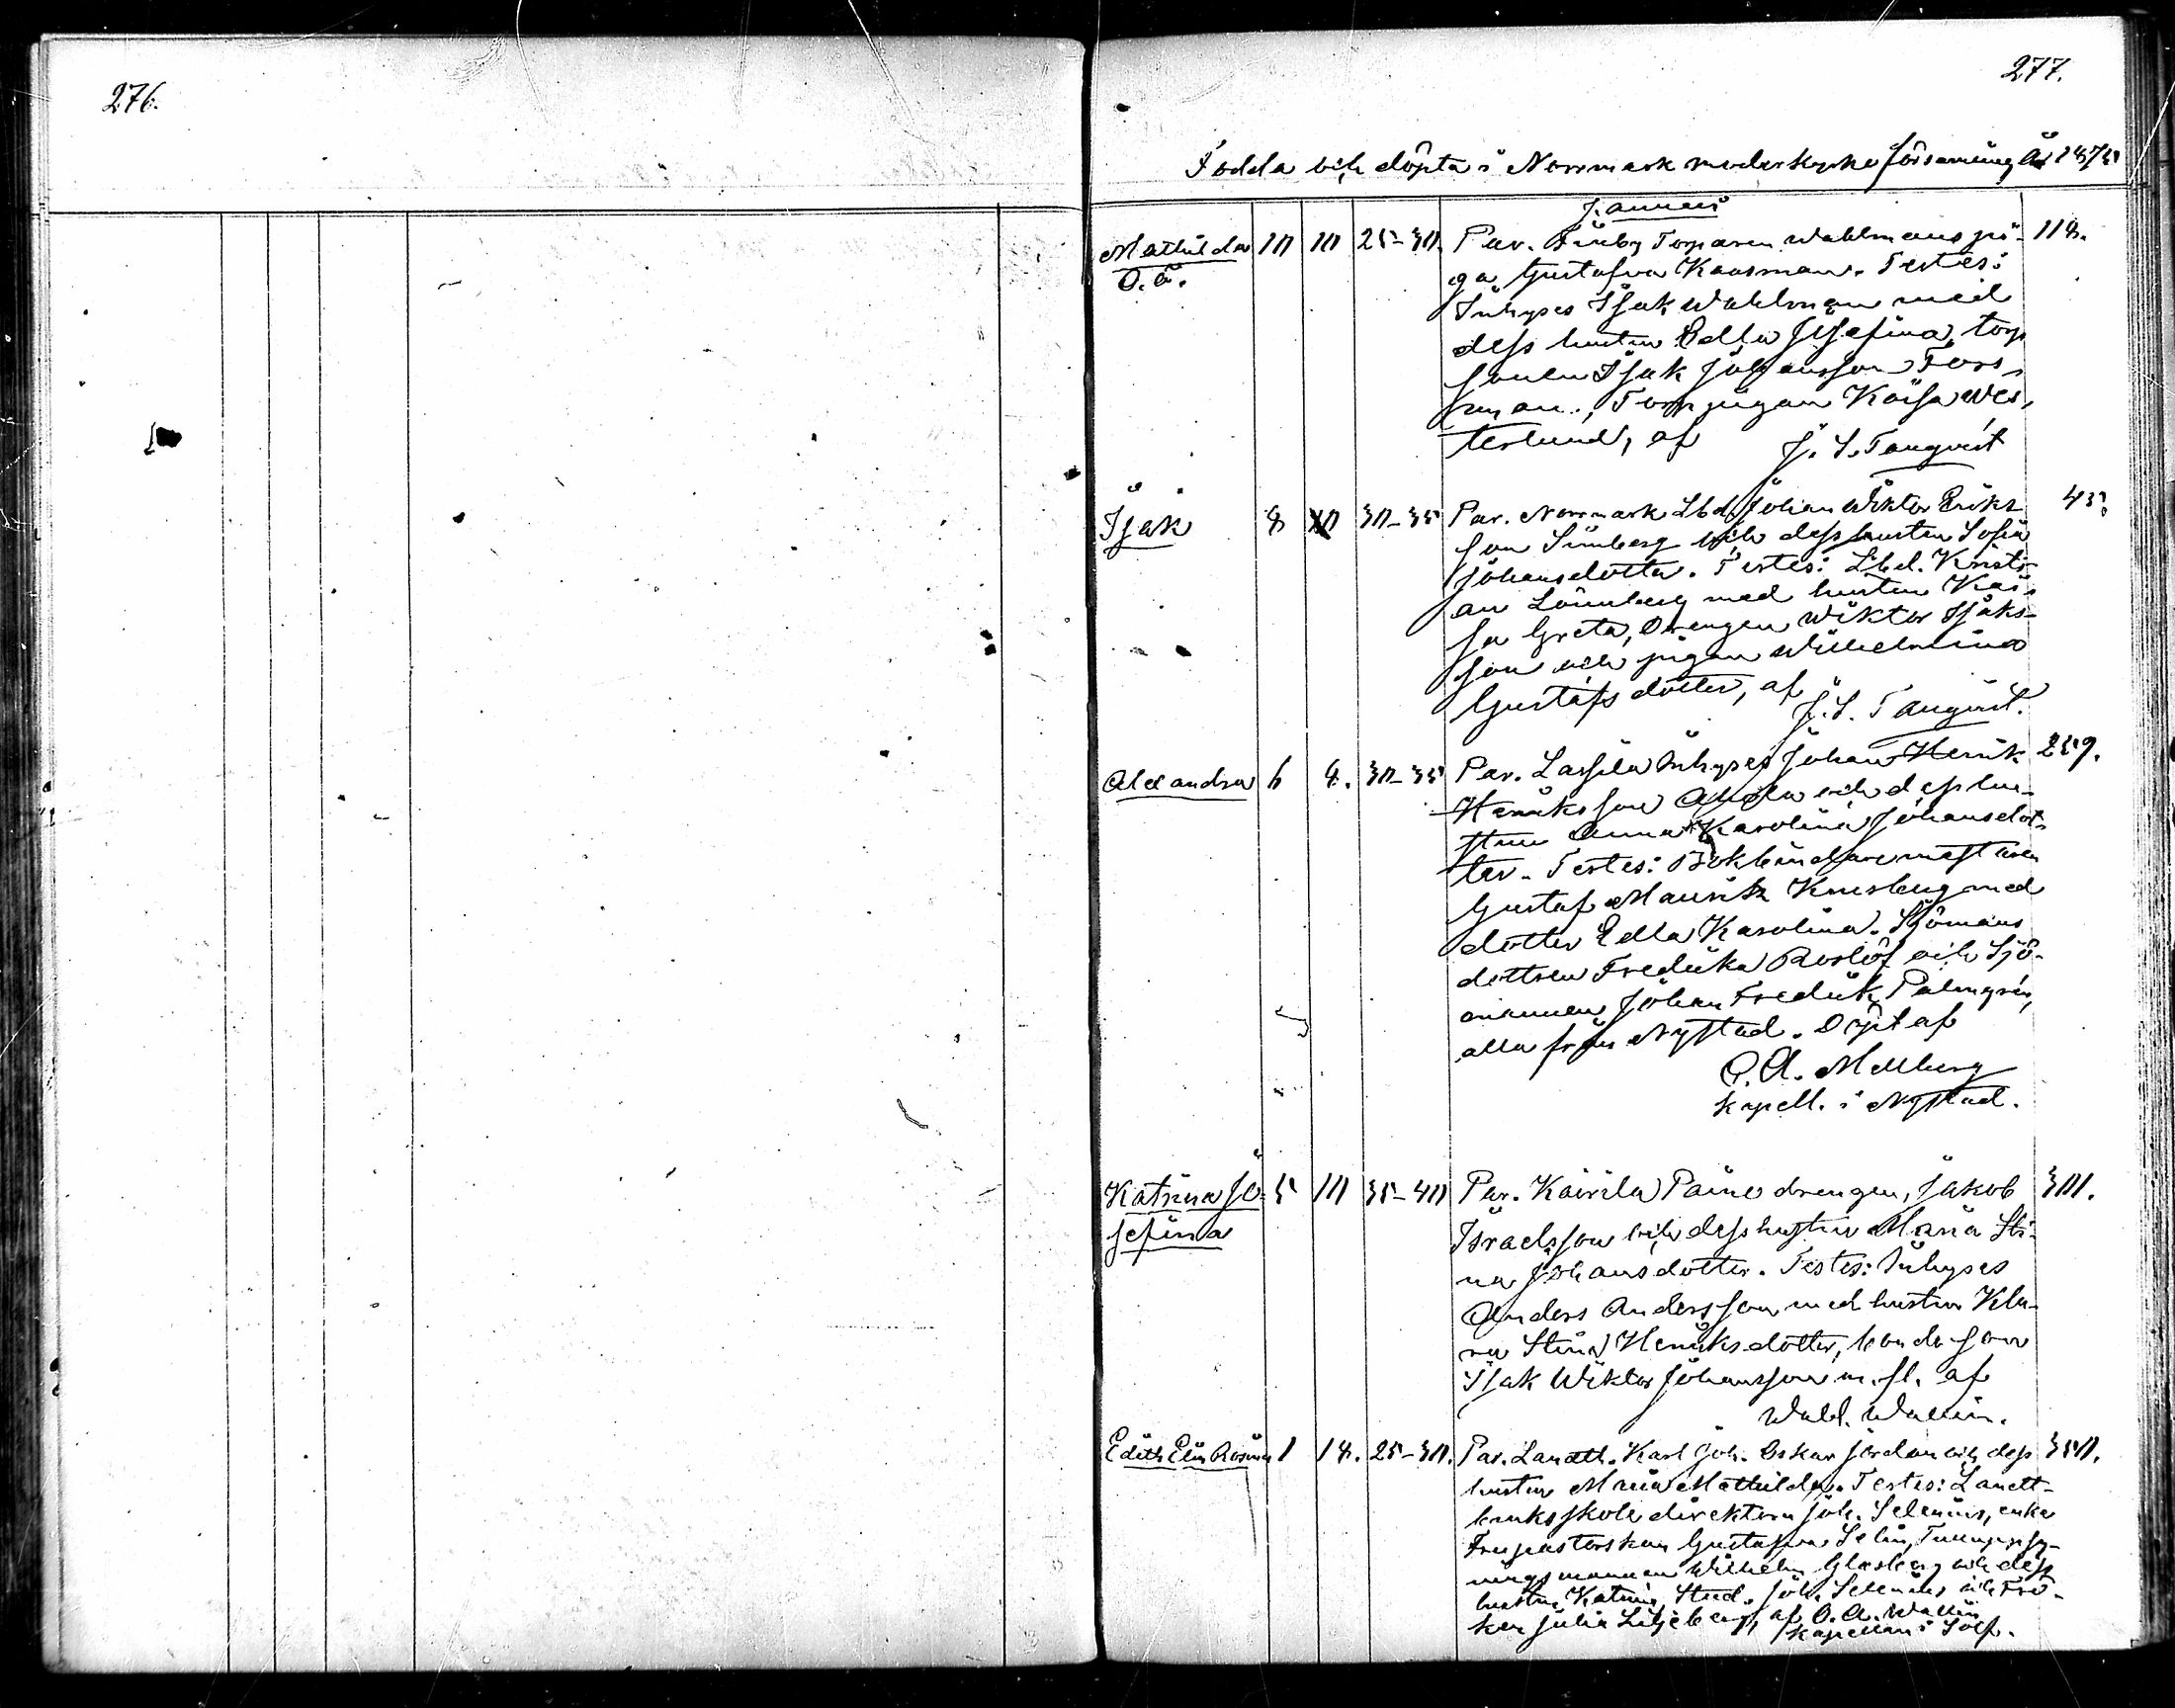 276.
277.
Födda och döpta i Norrmark moderkyrko församling År 1875
Januari
Mathilda 10 10 25-30. Par. Finby Torparen Wahlmans pi- 118.
O.ä. ga Gustafva Kaasman. Testes:
Inhyses Isak Wahlman med
dess hustru Edla Josefina, torp
sonen Isak Johansson Fors-
man, Torp pigan Kaisa Wes-
terlund, af J. S. Tanqvist
Isak 8 10 30-35 Par. Norrmark Lbd. Johan Wiktor Eriks- 45.
son Sünberg och dess hustru Sofia
Johansdotter. Testes: Lbd. Kristi-
an Lönnberg med hustru Kai-
sa Greta, Drengen Wiktor Isaks-
son och pigan Wilhelmina
Gustafsdotter, af
J. S. Tanqvist.
Alexandra 6 8. 30-35 Par. Lassila Inhyses Johan Henrik 259.
Henriksson och dess hu-
stru Anna Karolina Johansdot-
ter. Testes: Bokbindaremästaren
Gustaf Maurits med
dotter Edla Karolina. Sjömans
dottren Fredrika Roslöf och Sjö-
mannen Johan Fredrik Palmgrén,
alla från Nystad. Döpt af
Mellberg
kapell. i Nystad.
Katrina Jo- 5 10 35-40 Par. Kairila Paino drengen, Jakob 301.
sefina
Israelsson och dess hustru Maria Sti-
na Johansdotter. Testes: Inhyses
Anders Andersson med hustru Kla-
ra Stina Henriksdotter, bondeson
Isak Wiktor Johansson m. fl. af
Wald. Wallin.
Edith Elin Rosina 1 18. 25-30. Par. Landtb. Karl Joh. Oskar Jordan och dess 350.
hustru Maria Mathilda. Testes: Landt-
bruksskole direktorn Joh. Selenius, enke
Fru pastorskan Gustafva Selin,
Wilhelm Glasberg och dess
hustru Katrina, Stud. Joh. Selenius och Frö-
ken Julia Liljeberg, af O. A. Wallin
kapellan i Solf.